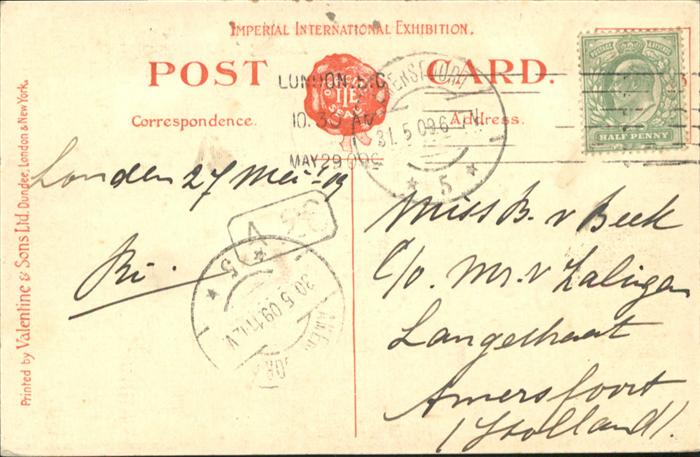 IMPERIAL INTERNATIONAL EXHIBITION.
POST CARD.
Correspondence.
Address.
LONDON, S.C
10.35 AM
MAY 29 09
31.5.09.6
5
POSTAGE REVENUE
HALF PENNY
SEAL
Londen 27 Mei '09
Ri.
5
30.5.09.11
Miss B. v Beek
c/o. Mr. v Zalingen
Langestraat
Amersfoort
(Holland).
Printed by Valentine & Sons Ltd. Dundee, London & New York.